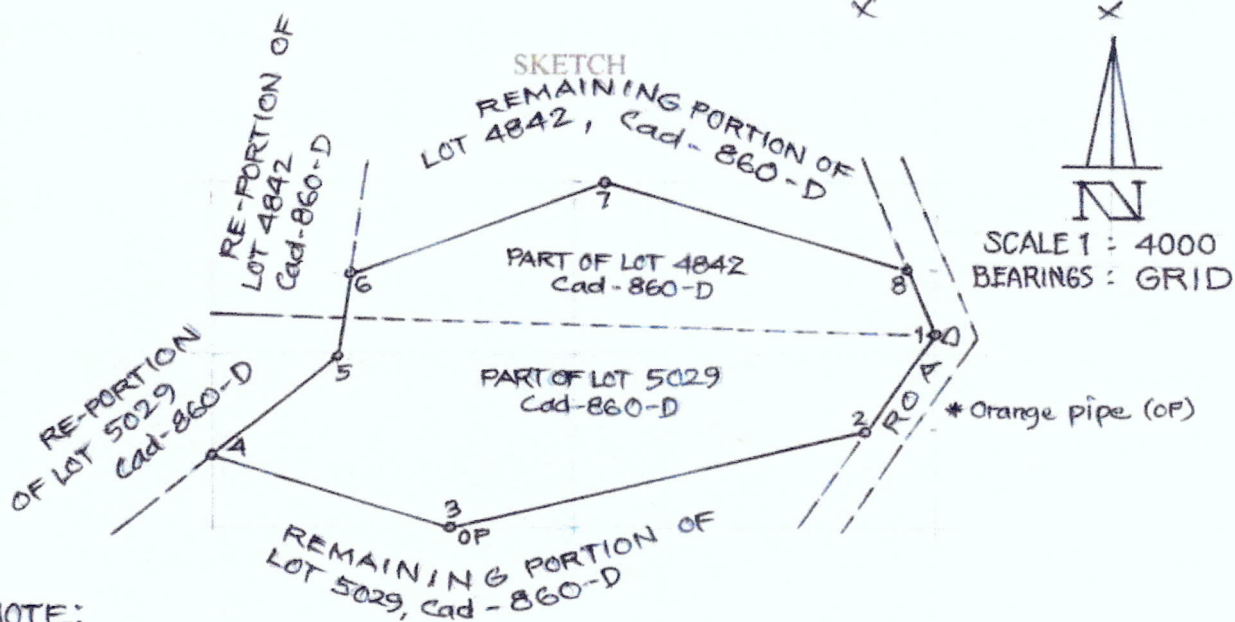 X
X
SKETCH
RE-PORTION OF
LOT 4842
Cad-860-D
REMAINING PORTION OF
LOT 4842, Cad-860-D
N
SCALE 1 : 4000
BEARINGS : GRID
7
PART OF LOT 4842
Cad-860-D
6
8
1
5
RE-PORTION
OF LOT 5029
Cad-860-D
PART OF LOT 5029
Cad-860-D
ROAD
* Orange pipe (OP)
2
4
3
OP
REMAINING PORTION OF
LOT 5029, Cad-860-D
NOTE: